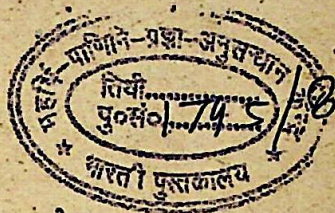 महर्षि-पाणिनि-प्रज्ञा-अनुसन्धान
तिथी..............
पु०सं० 1745
* भारती पुस्तकालय *